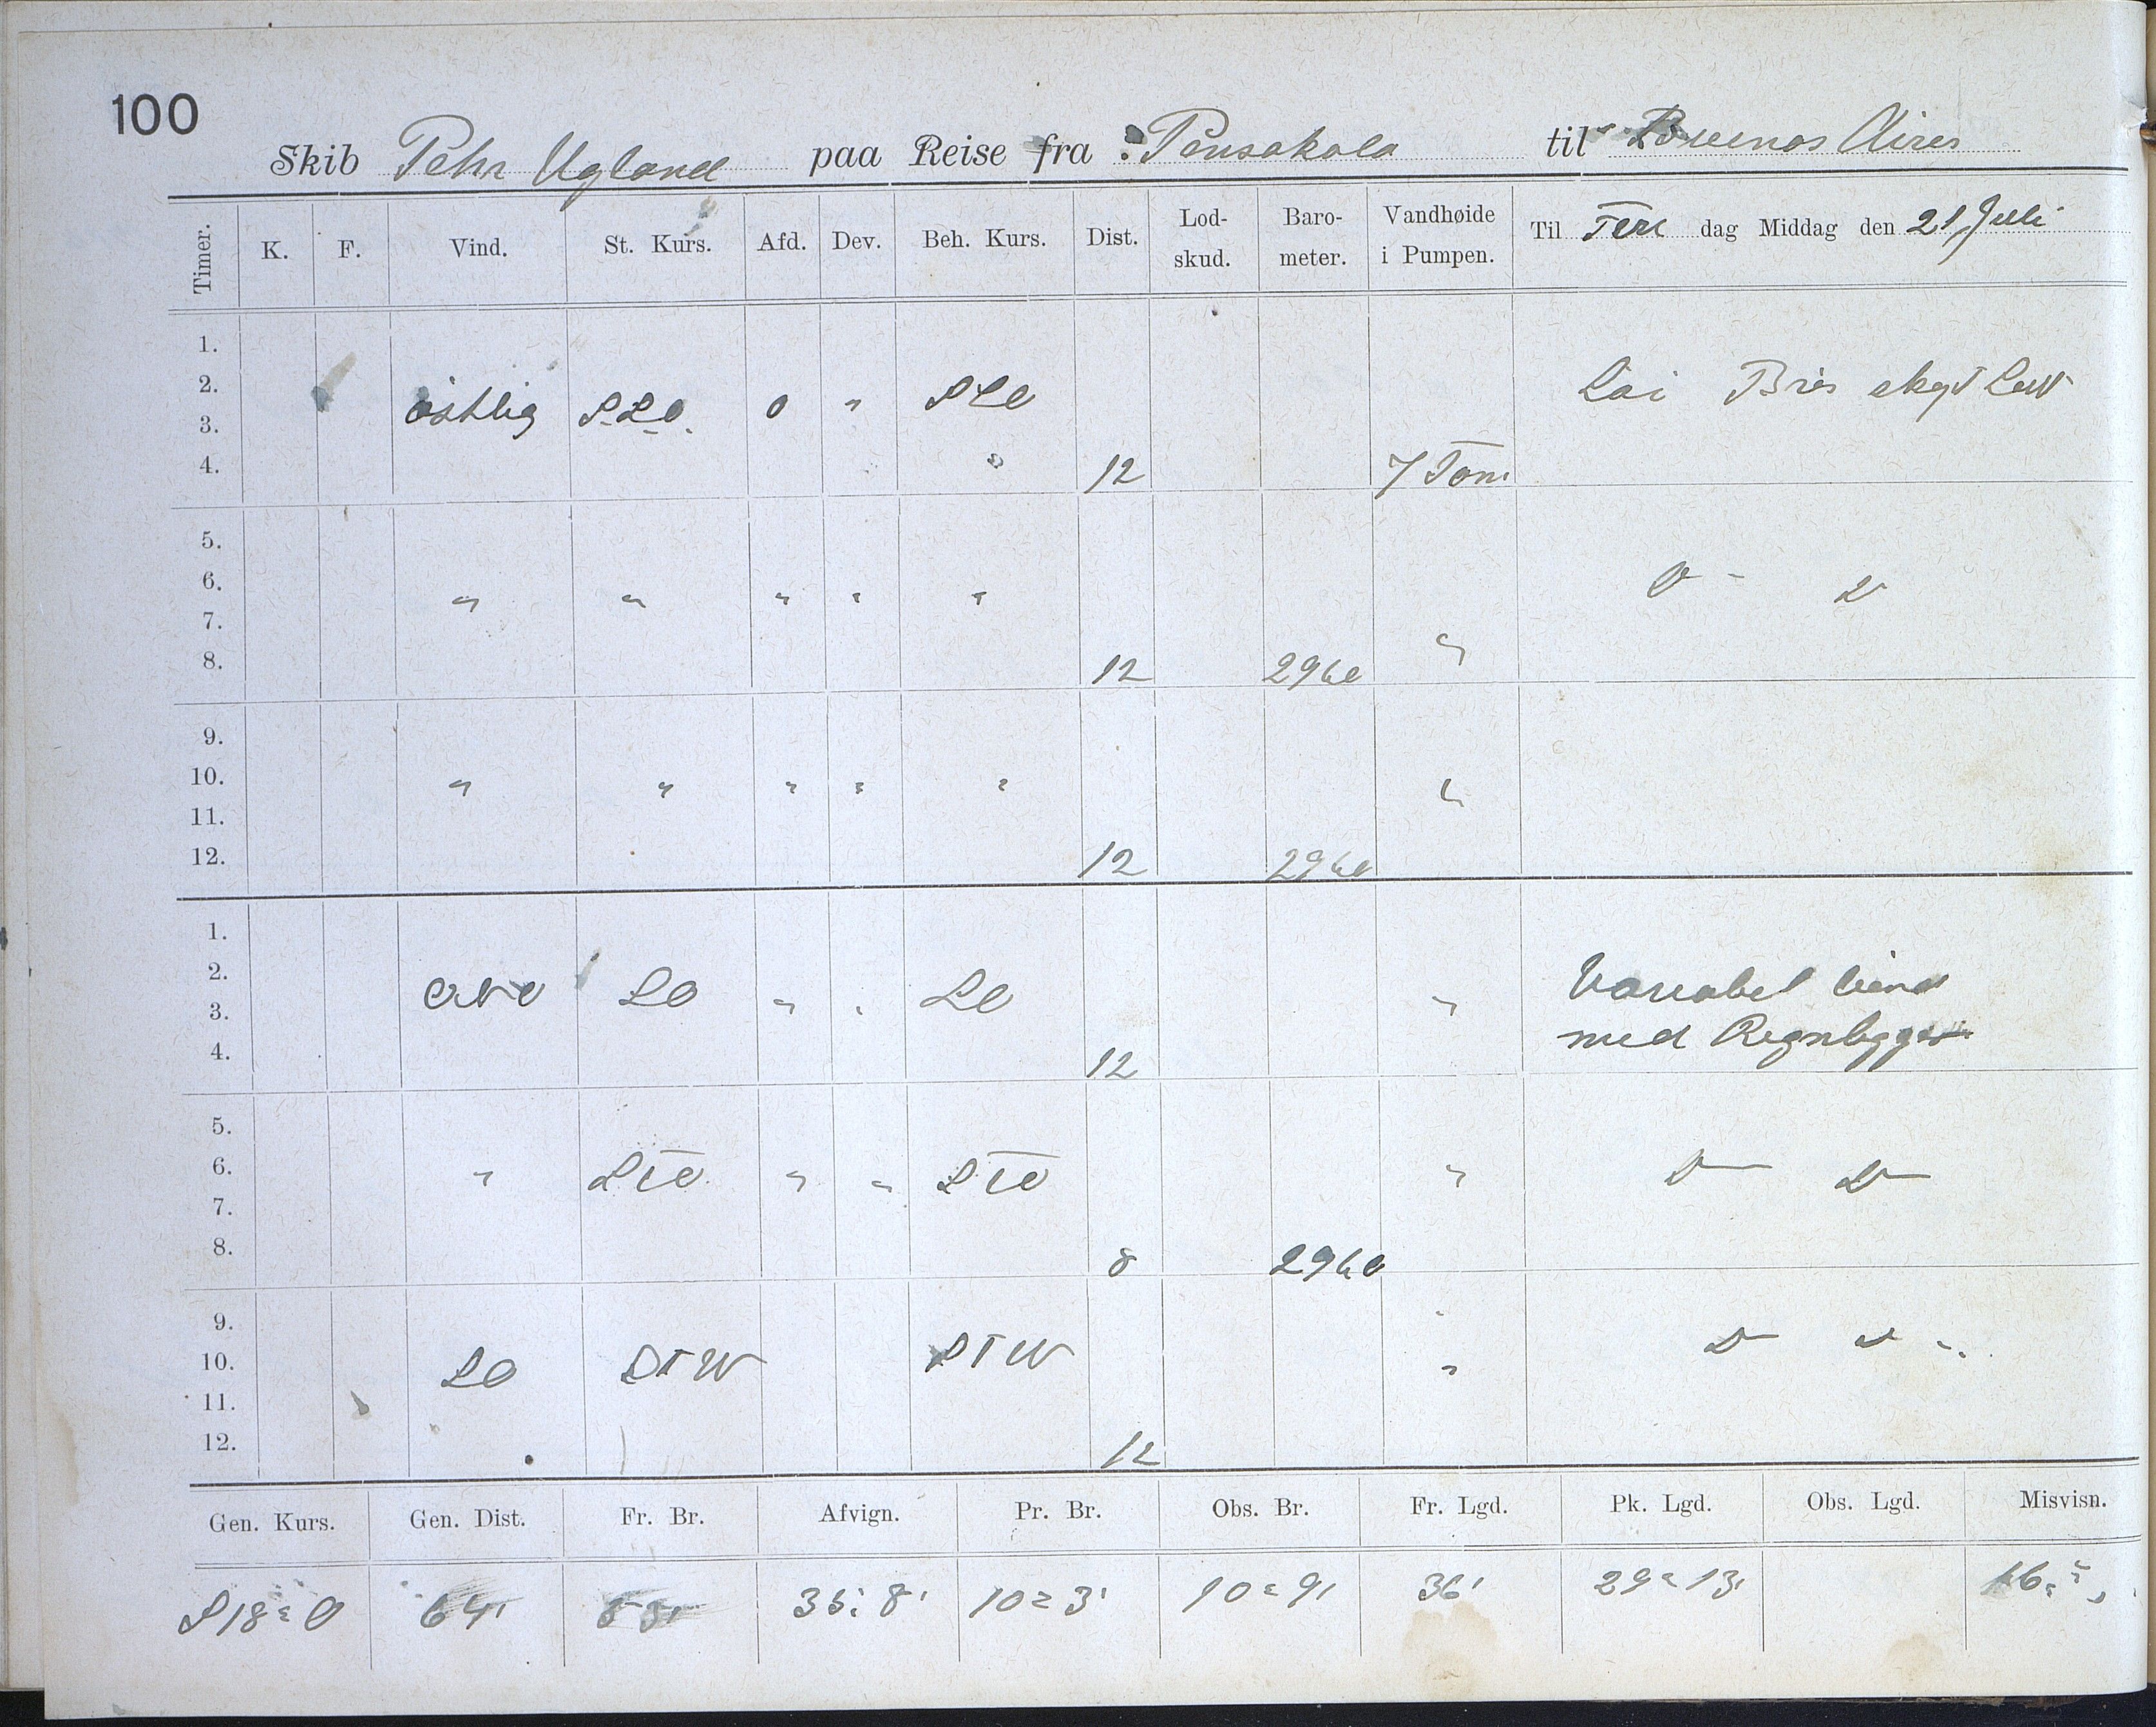 100
Skib Pehr Ugland paa Reise fra Pensakola til Buenos Aires
Timer. K. F. Vind. St. Kurs. Afd. Dev. Beh. Kurs. Dist. Lod-skud. Baro-meter. Vandhøide i Pumpen. Til Ters dag Middag den 21 Juli
1.
2. Lai Bris skyet Luft
3. østlig SSO 0 " SSO
4. " 12 7 Tom
5.
6. " " " " " D - D
7.
8. 12 2960 "
9.
10. " " " " " "
11.
12. 12 2960
1.
2. Variabel vind
3. ONO SO " " SO "
4. 12 med Regnbyger
5.
6. " STO " " STO " D D
7.
8. 8 2960
9. "
10. SO STW STW " D D "
11.
12. 12
Gen. Kurs. Gen. Dist. Fr. Br. Afvign. Pr. Br. Obs. Br. Fr. Lgd. Pk. Lgd. Obs. Lgd. Misvisn.
S18°O 64' 35:8' 10°3' 10°9' 36' 29°13' 16°